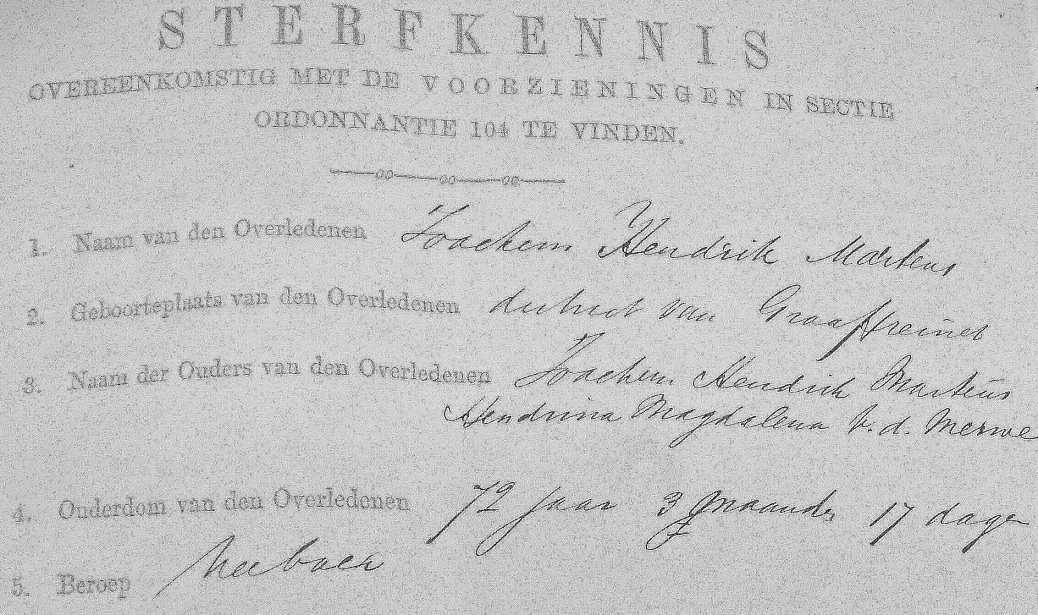 STERFKENNIS
OVEREENKOMSTIG MET DE VOORZIENINGEN IN SECTIE
ORDONNANTIE 104 TE VINDEN.
1. Naam van den Overledenen Joachem Hendrik Martens
2. Geboorteplaats van den Overledenen distrikt van Graaffreinet
3. Naam der Ouders van den Overledenen Joachem Hendrik Martens
Hendrina Magdalena v. d. Merwe
4. Ouderdom van den Overledenen 72 jaar 3 maanden 17 dagen
5. Beroep Veeboer